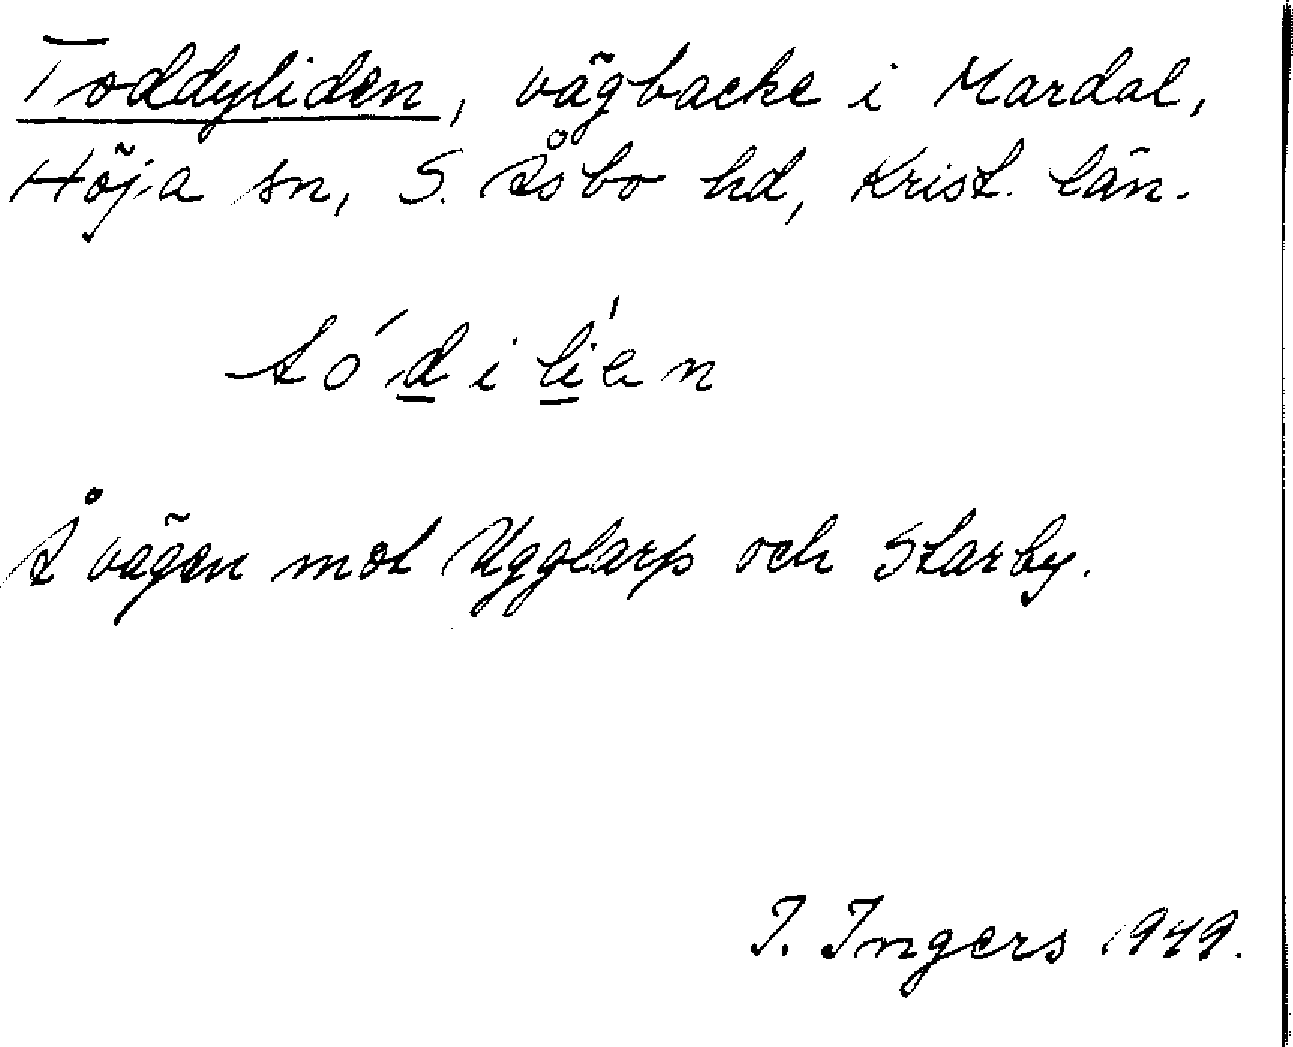 Toddyliden, vägbacke i Mardal,
Höja sn, S. Åsbo hd, Krist. län.
tódilien
Å vägen mot Ugglarp och Starby.
I. Ingers 1949.